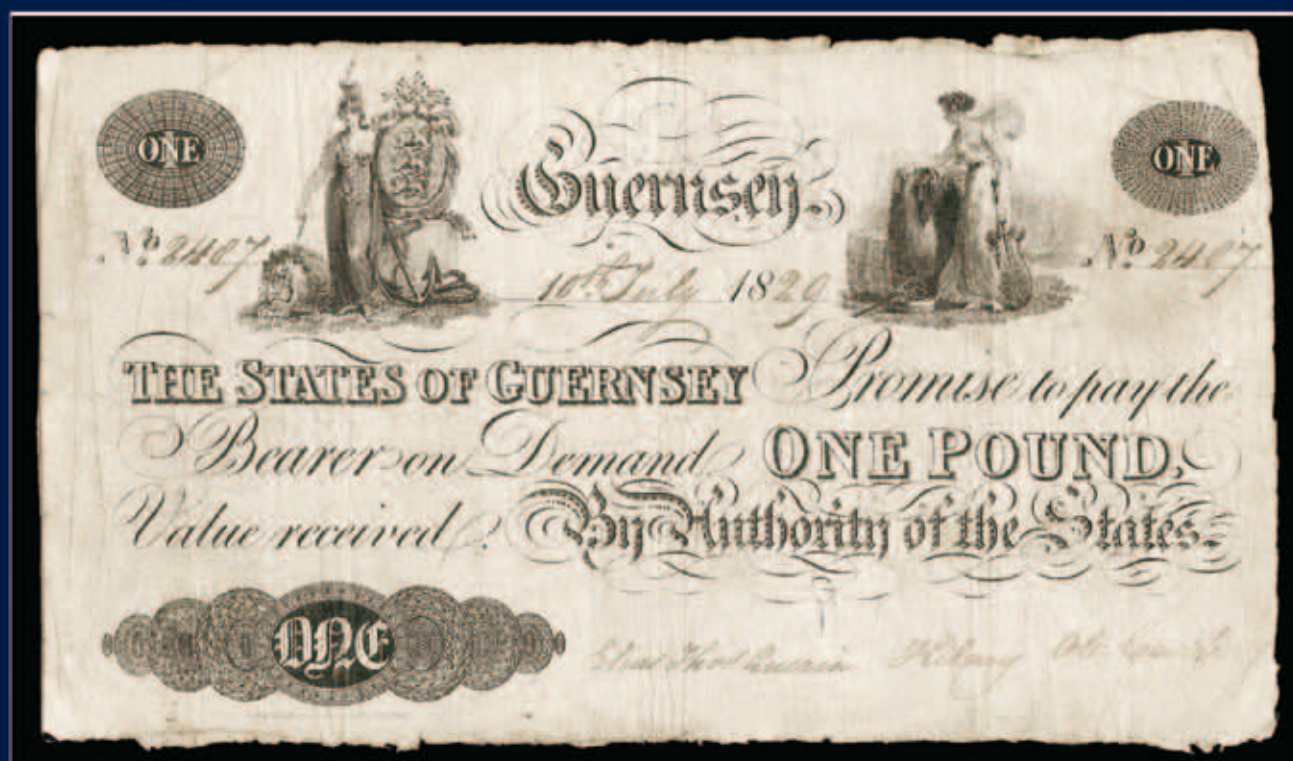 ONE
Guernsey.
ONE
No. 2487
10th July 1829
No. 2487
THE STATES OF GUERNSEY Promise to pay the
Bearer on Demand ONE POUND,
Value received. By Authority of the States.
ONE